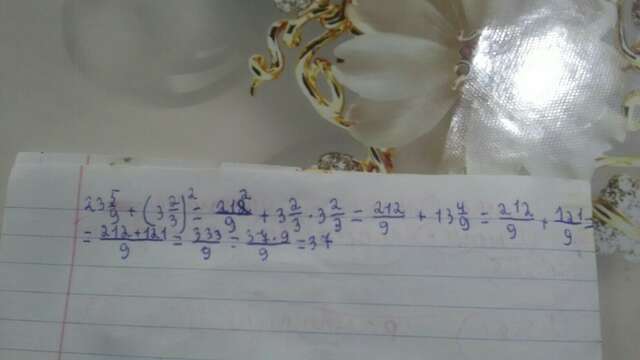 23 5/9 + (3 2/3)² = 212/9 + 3 2/3 · 3 2/3 = 212/9 + 13 4/9 = 212/9 + 121/9 =
= (212+121)/9 = 333/9 = (37·9)/9 = 37